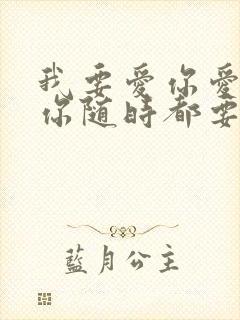 我要愛你愛
你隨時都要
藍月公主